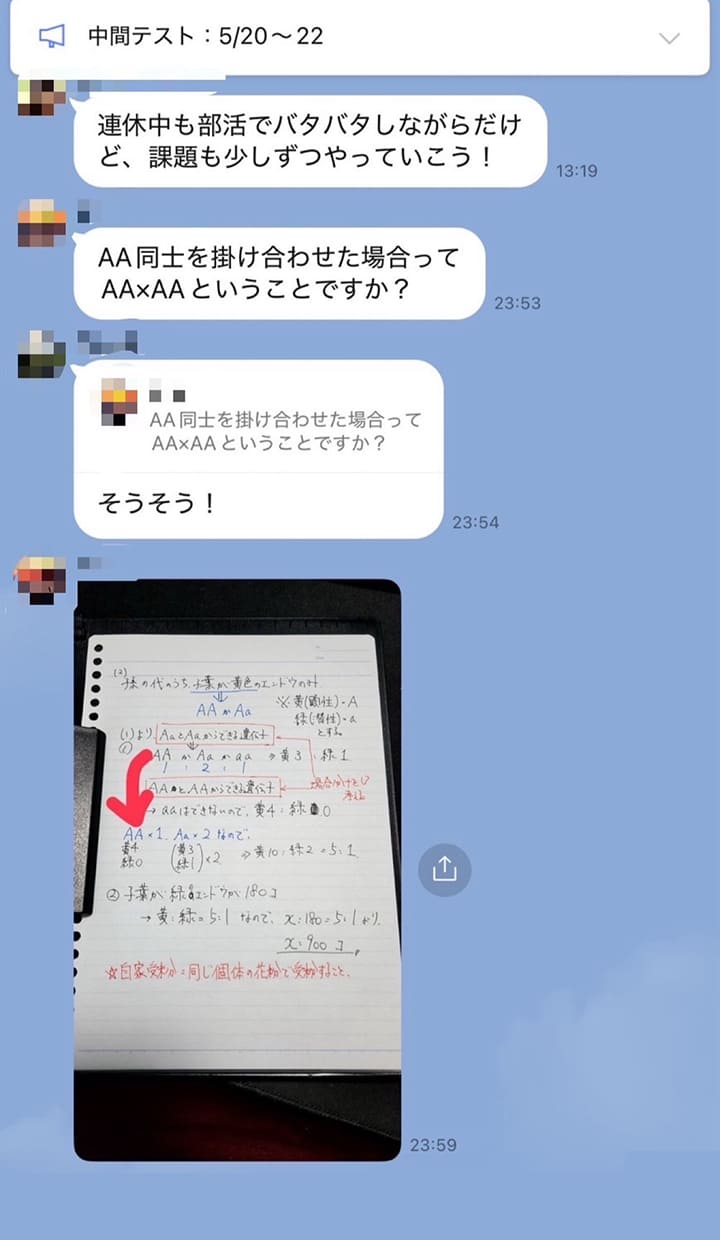 中間テスト：5/20～22
連休中も部活でバタバタしながらだけ
ど、課題も少しずつやっていこう！
13:19
AA同士を掛け合わせた場合って
AA×AAということですか？
23:53
AA同士を掛け合わせた場合って
AA×AAということですか？
そうそう！
23:54
(2)
孫の代のうち、子葉が黄色のエンドウのみ
AA か Aa
※黄(顕性)-A
緑(潜性)-a
とする
(1)より、AaとAaからできる遺伝子
①
AA か Aa か aa ⇒ 黄3：緑1
1 : 2 : 1
AAとAAからできる遺伝子
場合分けをして
考える
→ aaはできないので、黄4：緑0
AA×1、Aa×2なので、
黄4
緑0
(黄3
緑1)×2
⇒黄10：緑2=5:1
②子葉が緑のエンドウが180コ
→黄:緑=5:1なので、x:180=5:1より、
x=900コ
☆自家受粉=同じ個体の花粉で受粉すること、
23:59